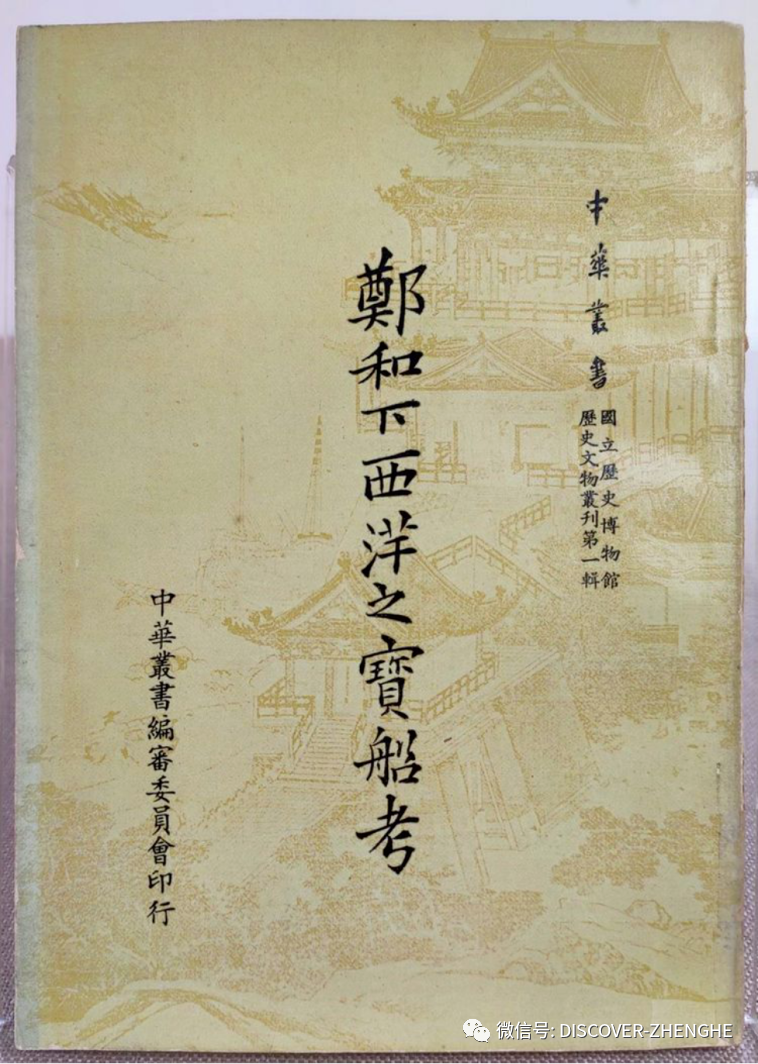 中華叢書
國立歷史博物館
歷史文物叢刊第一輯
鄭和下西洋之寶船考
中華叢書編審委員會印行
微信号: DISCOVER-ZHENGHE